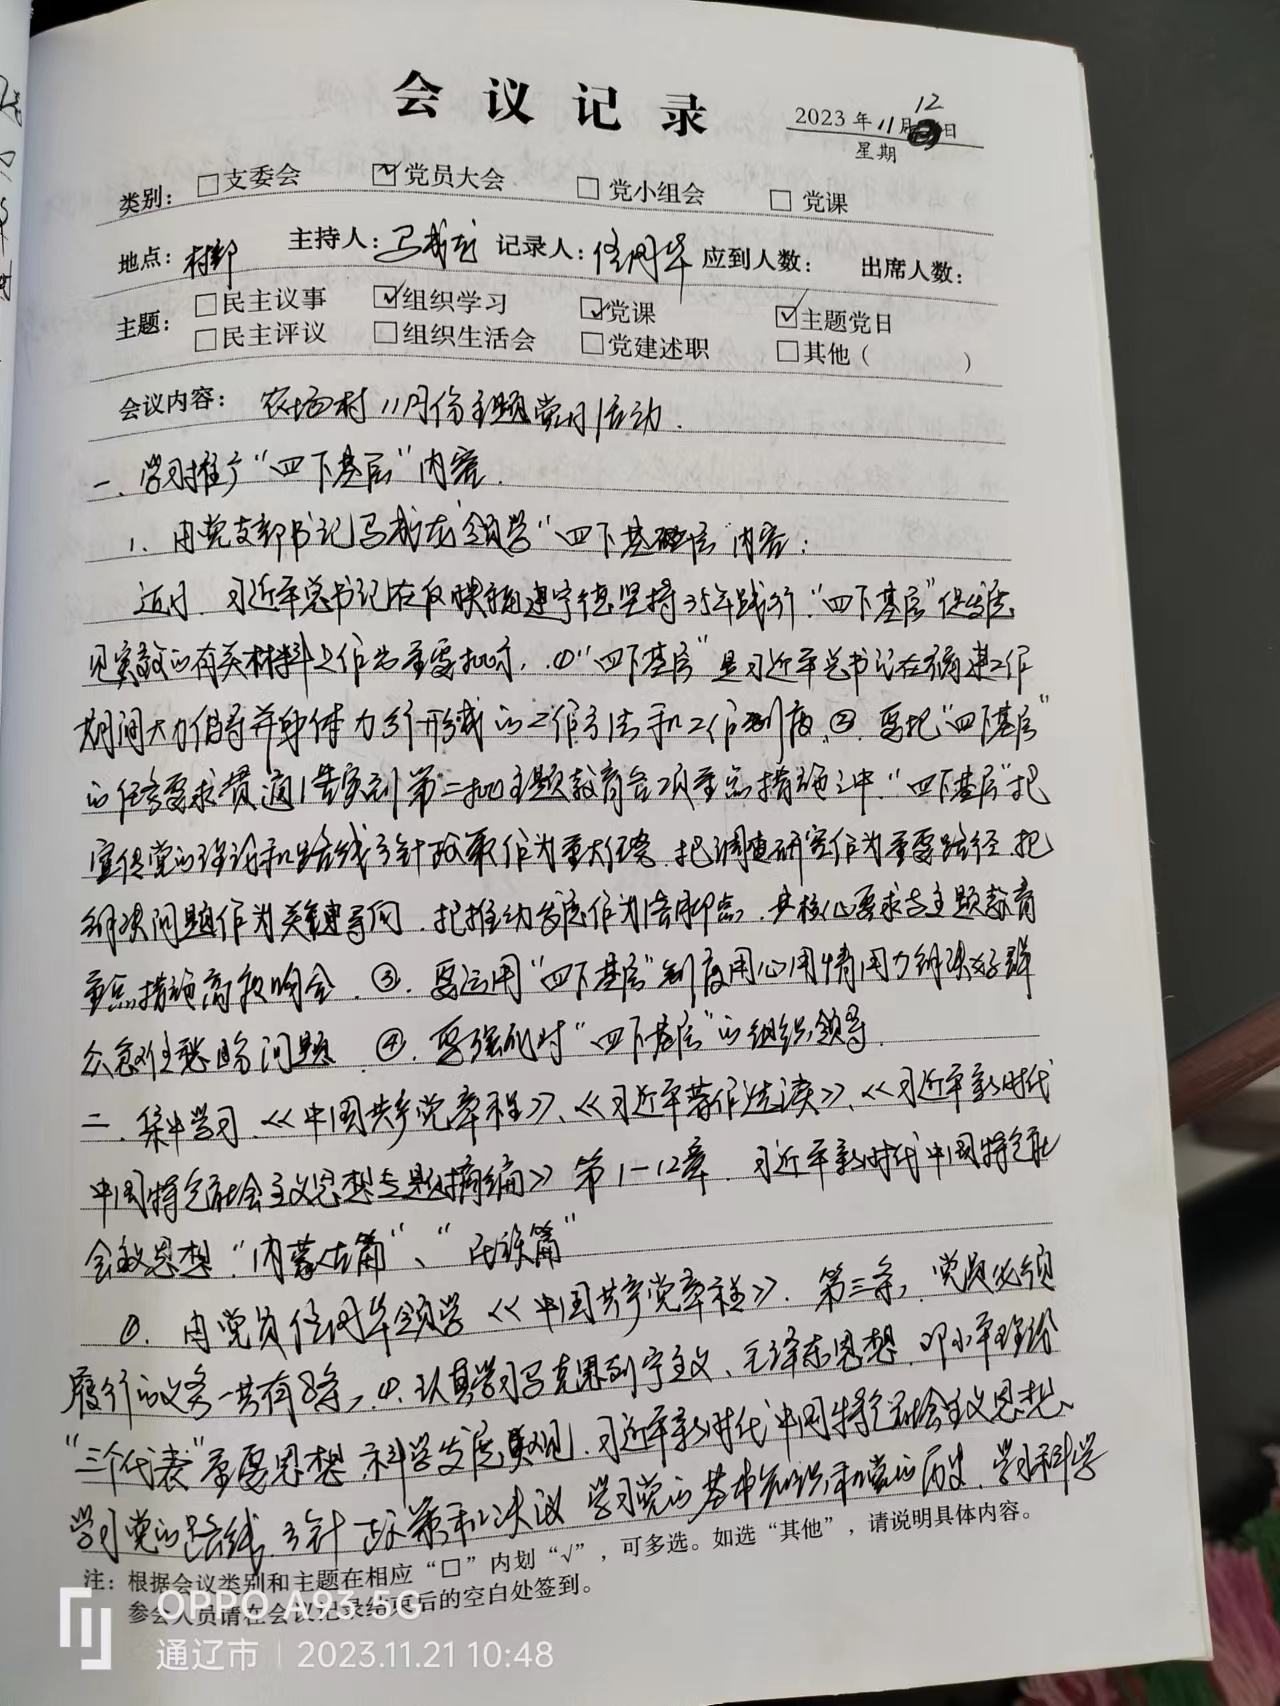 会议记录
12
2023 年 11月 日
星期
类别： □支委会 ☑党员大会 □党小组会 □党课
地点：村部 主持人：马 记录人：任 华 应到人数： 出席人数：
主题： □民主议事 ☑组织学习 ☑党课 ☑主题党日
□民主评议 □组织生活会 □党建述职 □其他（ ）
会议内容： 农场村11月份主题党日活动.
一、学习推广“四下基层”内容.
1、由党支部书记马 领学“四下基层”内容：
近日、习近平总书记在反映福建宁德坚持35年践行“四下基层”促发展
见实效的有关材料上作出重要批示，①“四下基层”是习近平总书记在福建工作
期间大力倡导并身体力行形成的工作方法和工作制度、②、要把“四下基层”
的任务要求贯通 落实到第二批主题教育各项重点措施之中.“四下基层”把
宣传党的理论和路线方针政策作为重大任务、把调查研究作为重要路径、把
解决问题作为关键导向、把推动发展作为 ，其核心要求与主题教育
重点措施高 、③、要运用“四下基层”制度用心用情用力解决好群
众急难愁盼问题、④、要强化对“四下基层”的组织领导.
二、集中学习、《中国共产党章程》、《习近平著作选读》、《习近平新时代
中国特色社会主义思想专题摘编》第1-12章、习近平新时代中国特色社
会主义思想“内蒙古篇”、“民族篇”
①、由党员任 华领学《中国共产党章程》、第三条，党员必须
履行的义务一共有8条，①、认真学习马克思列宁主义、毛泽东思想、邓小平理论
“三个代表”重要思想、科学发展观、习近平新时代中国特色社会主义思想、
学习党的路线、方针、政策和决议、学习党的基本知识和党的历史、学习科学
注：根据会议类别和主题在相应“□”内划“√”，可多选。如选“其他”，请说明具体内容。
参会人员请在会议记录结束后的空白处签到。
OPPO A93 5G
通辽市 2023.11.21 10:48